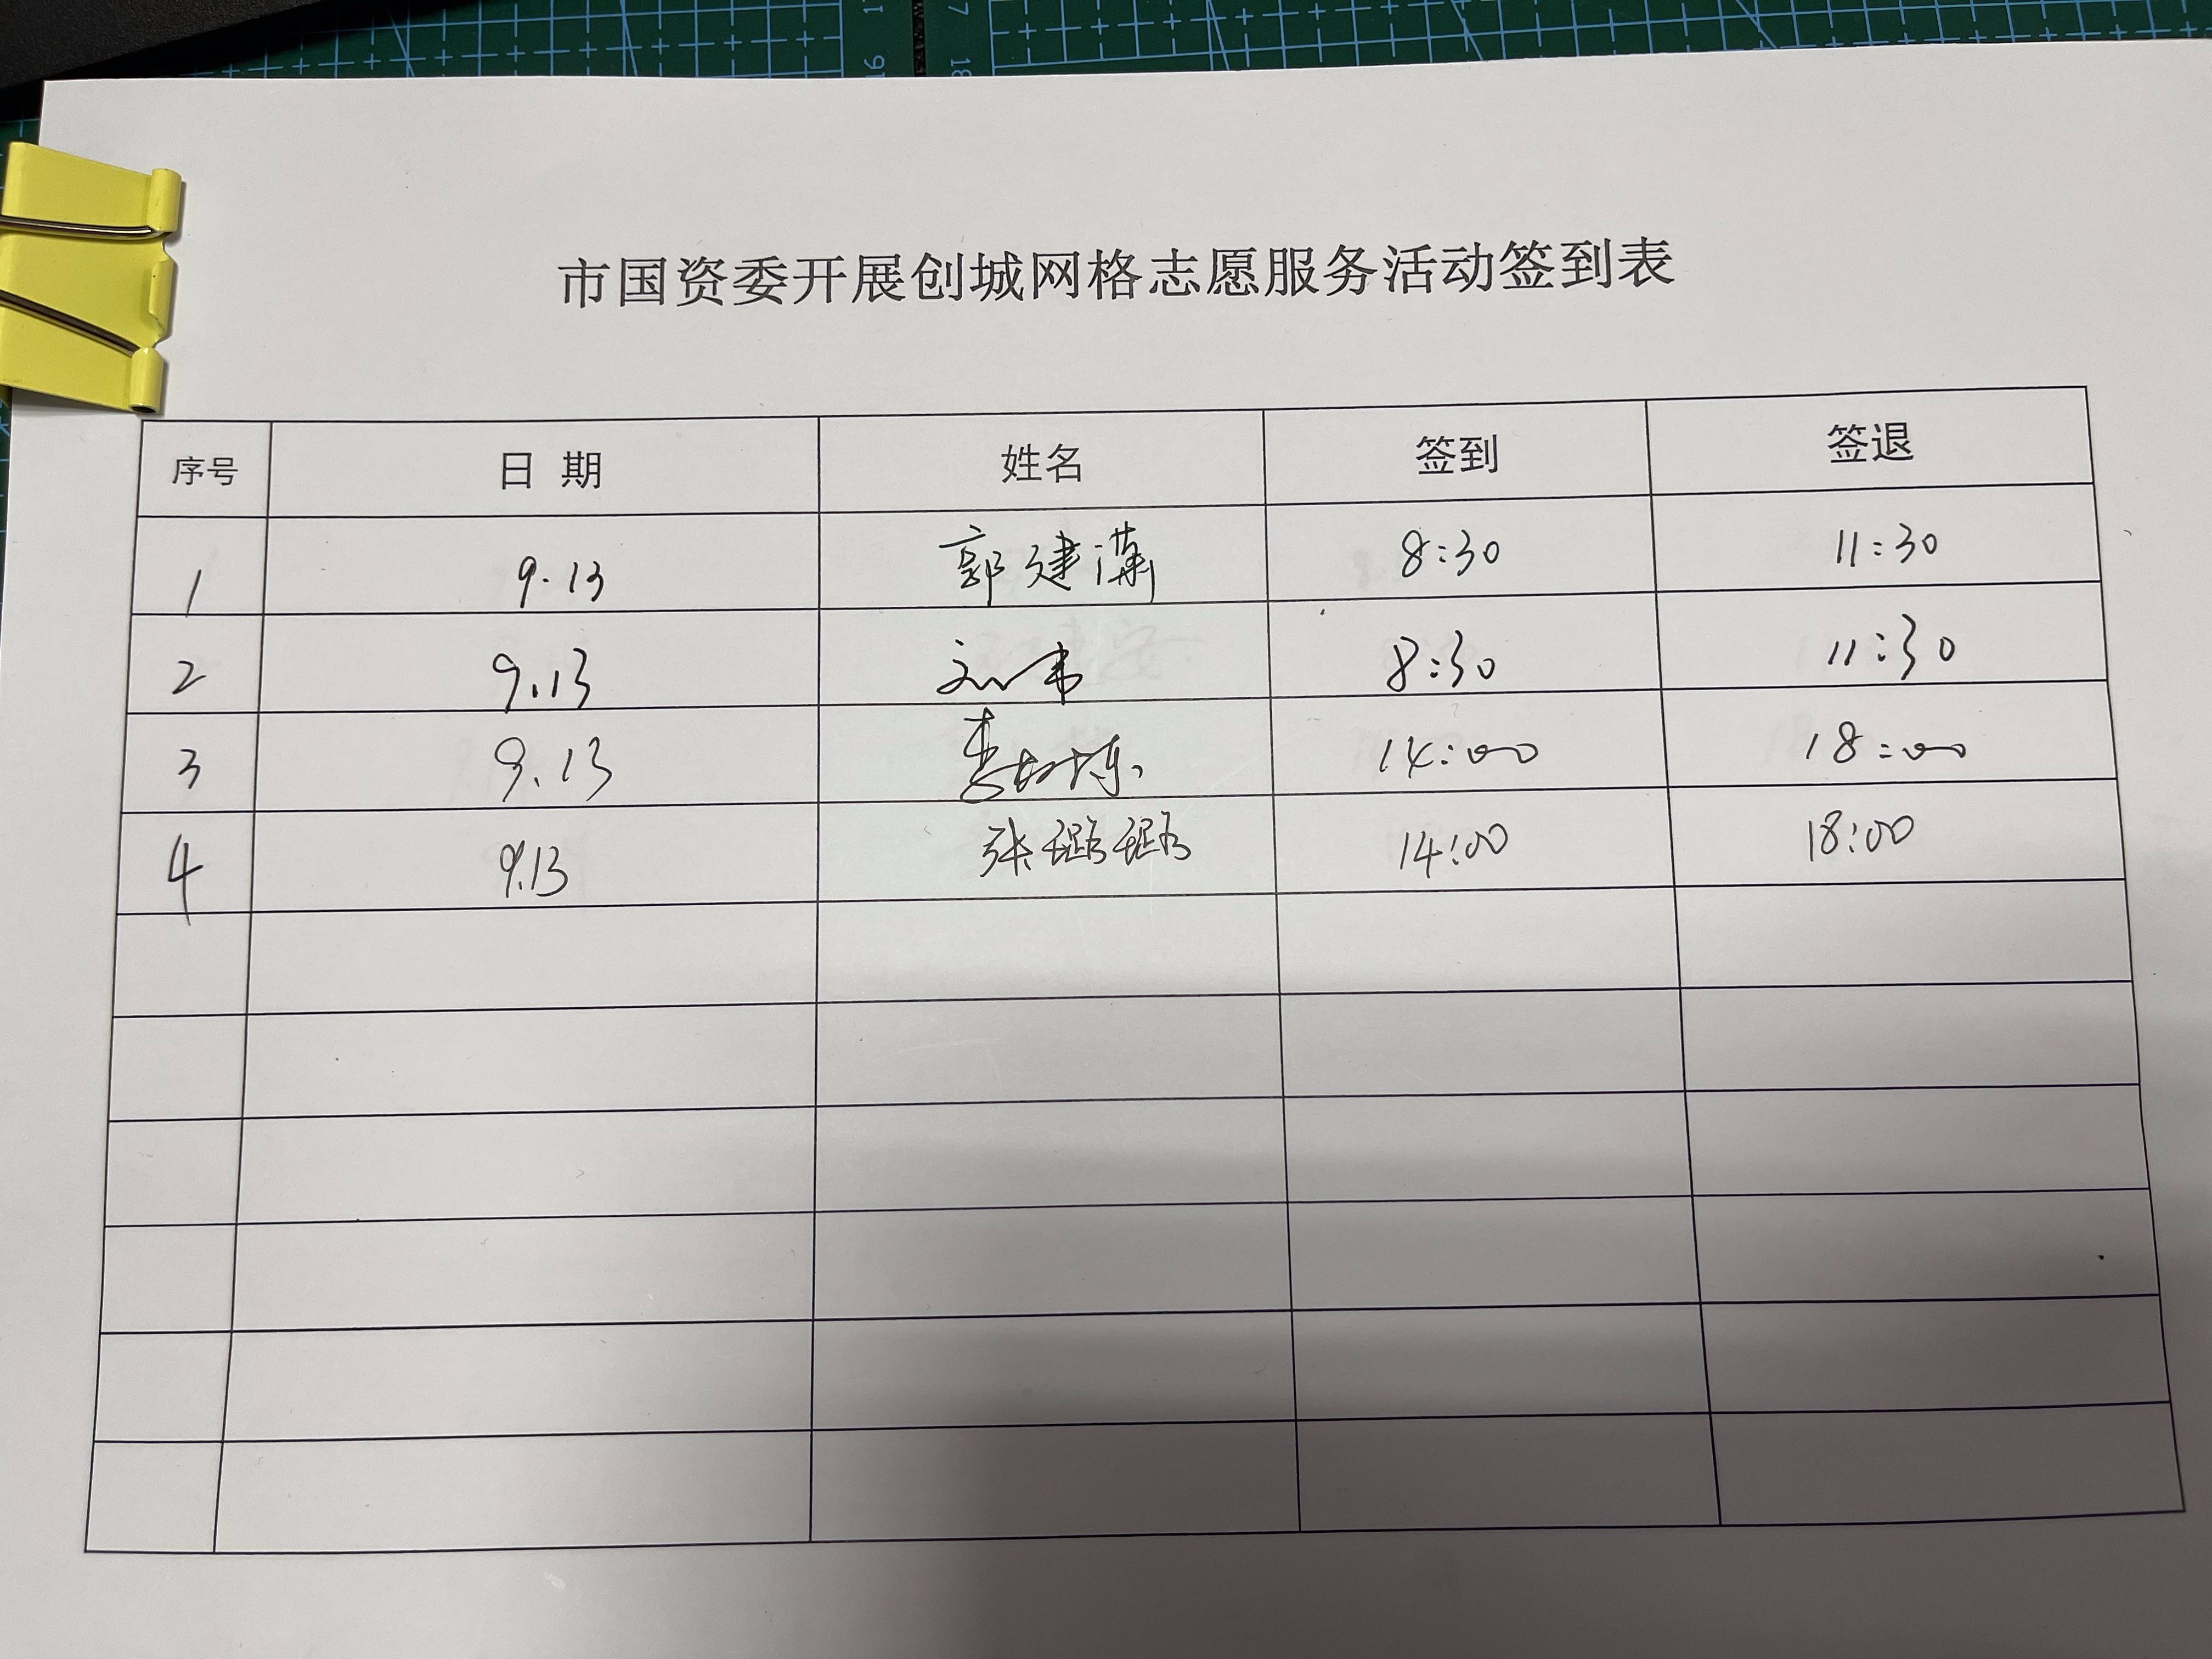 市国资委开展创城网格志愿服务活动签到表
序号 日期 姓名 签到 签退
1 9.13 郭建 8:30 11:30
2 9.13 刘韦 8:30 11:30
3 9.13 李 14:00 18:00
4 9.13 张璐璐 14:00 18:00